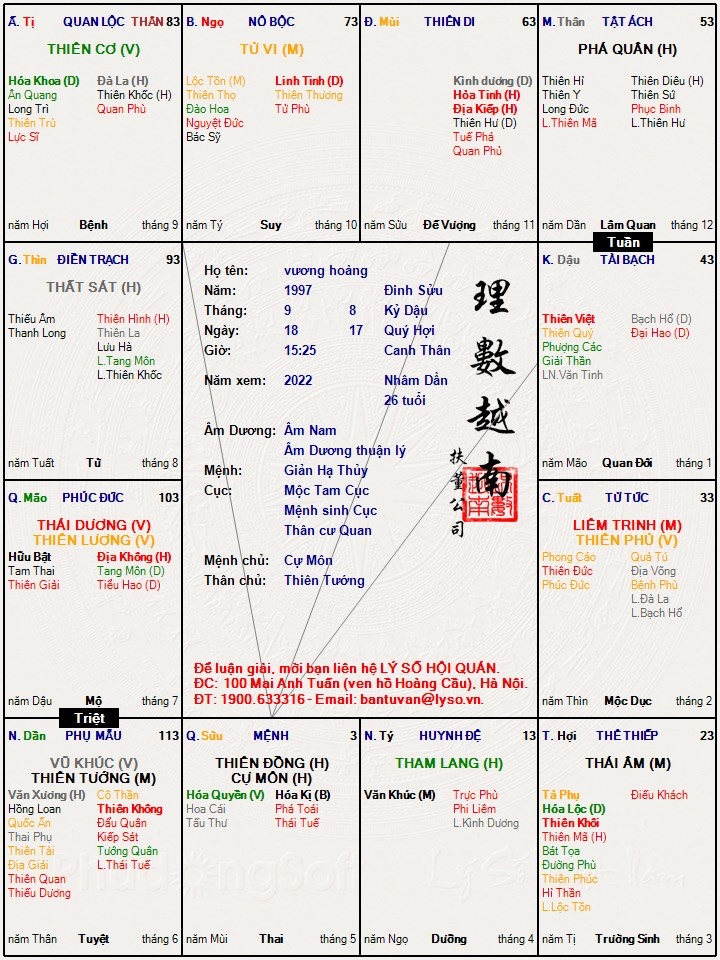 Ấ. Tị QUAN LỘC THÂN 83
THIÊN CƠ (V)
Hóa Khoa (D) Đà La (H)
Ân Quang Thiên Khốc (H)
Long Trì Quan Phủ
Thiên Trù
Lực Sĩ
năm Hợi Bệnh tháng 9
B. Ngọ NÔ BỘC 73
TỬ VI (M)
Lộc Tồn (M) Linh Tinh (D)
Thiên Thọ Thiên Thương
Đào Hoa Tử Phù
Nguyệt Đức
Bác Sỹ
năm Tý Suy tháng 10
Đ. Mùi THIÊN DI 63
Kình dương (D)
Hỏa Tinh (H)
Địa Kiếp (H)
Thiên Hư (D)
Tuế Phá
Quan Phủ
năm Sửu Đế Vượng tháng 11
M. Thân TẬT ÁCH 53
PHÁ QUÂN (H)
Thiên Hỉ Thiên Diêu (H)
Thiên Y Thiên Sứ
Long Đức Phục Binh
L.Thiên Mã L.Thiên Hư
năm Dần Lâm Quan tháng 12
Tuần
G. Thìn ĐIỀN TRẠCH 93
THẤT SÁT (H)
Thiếu Âm Thiên Hình (H)
Thanh Long Thiên La
Lưu Hà
L.Tang Môn
L.Thiên Khốc
năm Tuất Tử tháng 8
Họ tên: vương hoàng
Năm: 1997 Đinh Sửu
Tháng: 9 8 Kỷ Dậu
Ngày: 18 17 Quý Hợi
Giờ: 15:25 Canh Thân
Năm xem: 2022 Nhâm Dần
26 tuổi
Âm Dương: Âm Nam
Âm Dương thuận lý
Mệnh: Giản Hạ Thủy
Cục: Mộc Tam Cục
Mệnh sinh Cục
Thân cư Quan
Mệnh chủ: Cự Môn
Thân chủ: Thiên Tướng
理數越南
扶董公司
Để luận giải, mời bạn liên hệ LÝ SỐ HỘI QUÁN.
ĐC: 100 Mai Anh Tuấn (ven hồ Hoàng Cầu), Hà Nội.
ĐT: 1900.633316 - Email: bantuvan@lyso.vn.
K. Dậu TÀI BẠCH 43
Thiên Việt Bạch Hổ (D)
Thiên Quý Đại Hao (D)
Phượng Các
Giải Thần
LN.Văn Tinh
năm Mão Quan Đới tháng 1
Q. Mão PHÚC ĐỨC 103
THÁI DƯƠNG (V)
THIÊN LƯƠNG (V)
Hữu Bật Địa Không (H)
Tam Thai Tang Môn (D)
Thiên Giải Tiểu Hao (D)
năm Dậu Mộ tháng 7
Triệt
C. Tuất TỬ TỨC 33
LIÊM TRINH (M)
THIÊN PHỦ (V)
Phong Cáo Quả Tú
Thiên Đức Địa Võng
Phúc Đức Bệnh Phù
L.Đà La
L.Bạch Hổ
năm Thìn Mộc Dục tháng 2
N. Dần PHỤ MẪU 113
VŨ KHÚC (V)
THIÊN TƯỚNG (M)
Văn Xương (H) Cô Thần
Hồng Loan Thiên Không
Quốc Ấn Đẩu Quân
Thai Phụ Kiếp Sát
Thiên Tài Tướng Quân
Địa Giải L.Thái Tuế
Thiên Quan
Thiếu Dương
năm Thân Tuyệt tháng 6
Q. Sửu MỆNH 3
THIÊN ĐỒNG (H)
CỰ MÔN (H)
Hóa Quyền (V) Hóa Kị (B)
Hoa Cái Phá Toái
Tấu Thư Thái Tuế
năm Mùi Thai tháng 5
N. Tý HUYNH ĐỆ 13
THAM LANG (H)
Văn Khúc (M) Trực Phù
Phi Liêm
L.Kình Dương
năm Ngọ Dưỡng tháng 4
T. Hợi THÊ THIẾP 23
THÁI ÂM (M)
Tả Phụ Điếu Khách
Hóa Lộc (D)
Thiên Khôi
Thiên Mã (H)
Bát Tọa
Đường Phù
Thiên Phúc
Hỉ Thần
L.Lộc Tồn
năm Tị Trường Sinh tháng 3